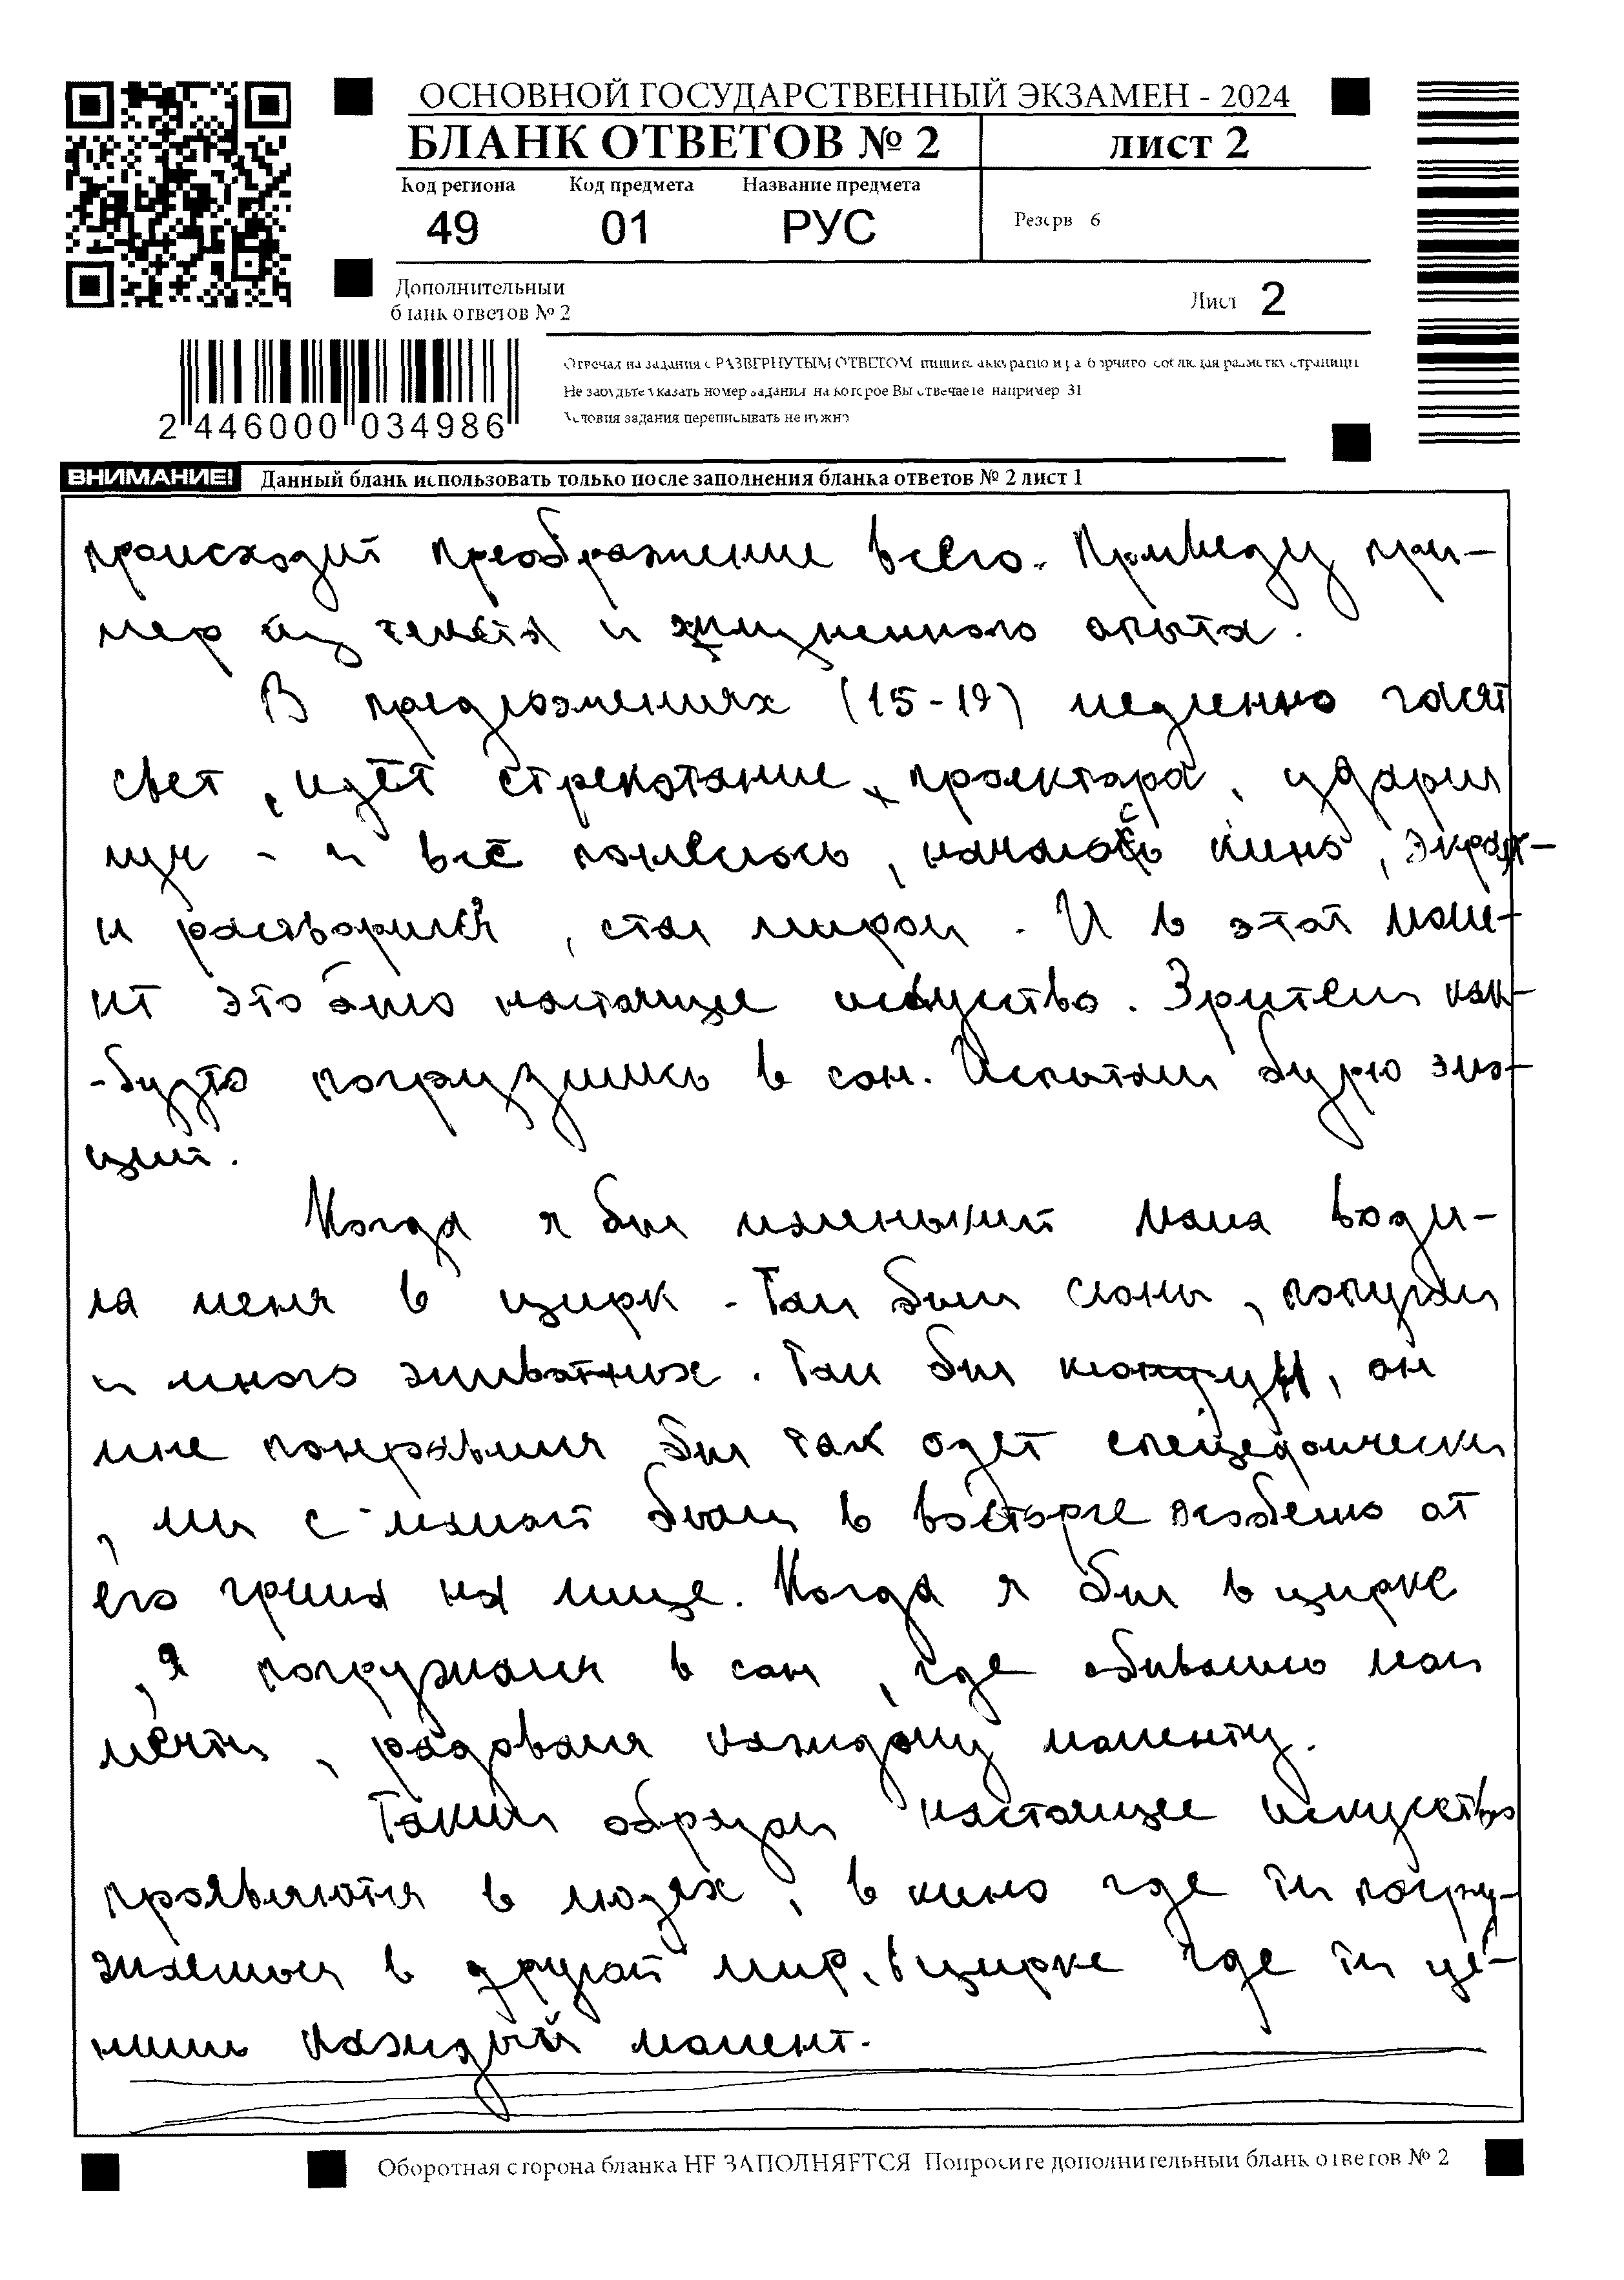 ОСНОВНОЙ ГОСУДАРСТВЕННЫЙ ЭКЗАМЕН - 2024
БЛАНК ОТВЕТОВ № 2
лист 2
Код региона
Код предмета
Название предмета
49
01
РУС
Резерв 6
Дополнительный
бланк ответов № 2
Лист 2
Отвечая на задания с РАЗВЕРНУТЫМ ОТВЕТОМ, пишите аккуратно и разборчиво, соблюдая разметку страницы
Не забудьте указать номер задания, на которое Вы отвечаете, например 31
Условия задания переписывать не нужно
2 446000 034986
ВНИМАНИЕ!
Данный бланк использовать только после заполнения бланка ответов № 2 лист 1
происходит преображение всего. Приведу при-
мер из текста и жизненного опыта.
В предложениях (15-19) медленно гаснт
свет, идёт стрекотание проектора, ударил
луч - и всё понеслось, началось кино, экран-
и растворился, стал миром. И в этот моме-
нт это было настоящие искуство. Зрители как-
-будто погрузились в сон. Испытали бурю эмо-
ций.
Когда я был маленький мама води-
ла меня в цирк. Там были слоны, попугаи
и много животных. Там был клоун, он
мне понравился был так одет специфически
, мы с мамой были в восторге особено от
его грима на лице. Когда я был в цирке
, я погружался в сон, где сбывались мои
мечты, радовался каждому моменту.
Таким образом настоящее искуство
проявляются в людях, в кино где ты погру-
жаешься в другой мир, в цирке где ты це-
нишь каждый момент.
Оборотная сторона бланка НЕ ЗАПОЛНЯЕТСЯ Попросите дополнительный бланк ответов № 2